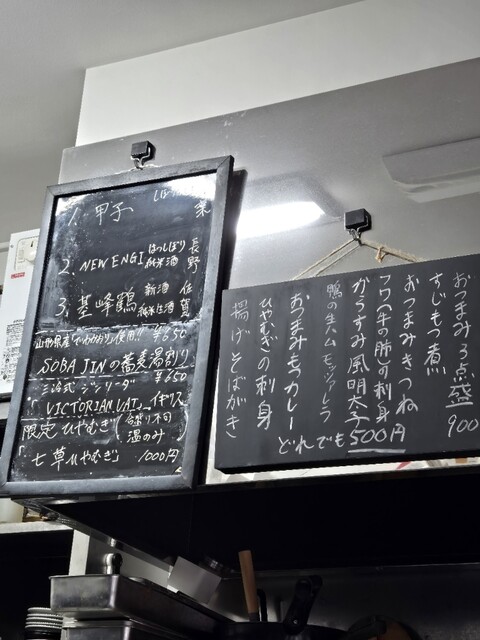 1. 甲子
2. NEW ENGI はつしぼり 純米酒 長野
3. 基峰鶴 新酒 純米生酒 佐賀
使用!! ¥650
SOBA JINの蕎麦湯割り
¥650
三冷式ジンリーダ
「VICTORIAN VAT」イギリス
限定 ひやむぎ(
温のみ)
「七草ひやむぎ」 1000円
おつまみ3点盛 900
すじもつ煮
おつまみきつね
フワ(牛の肺)の刺身
からすみ風明太子
鴨の生ハムモッツァレラ
おつまみもつカレー
ひやむぎの刺身
揚げそばがき
どれでも500円